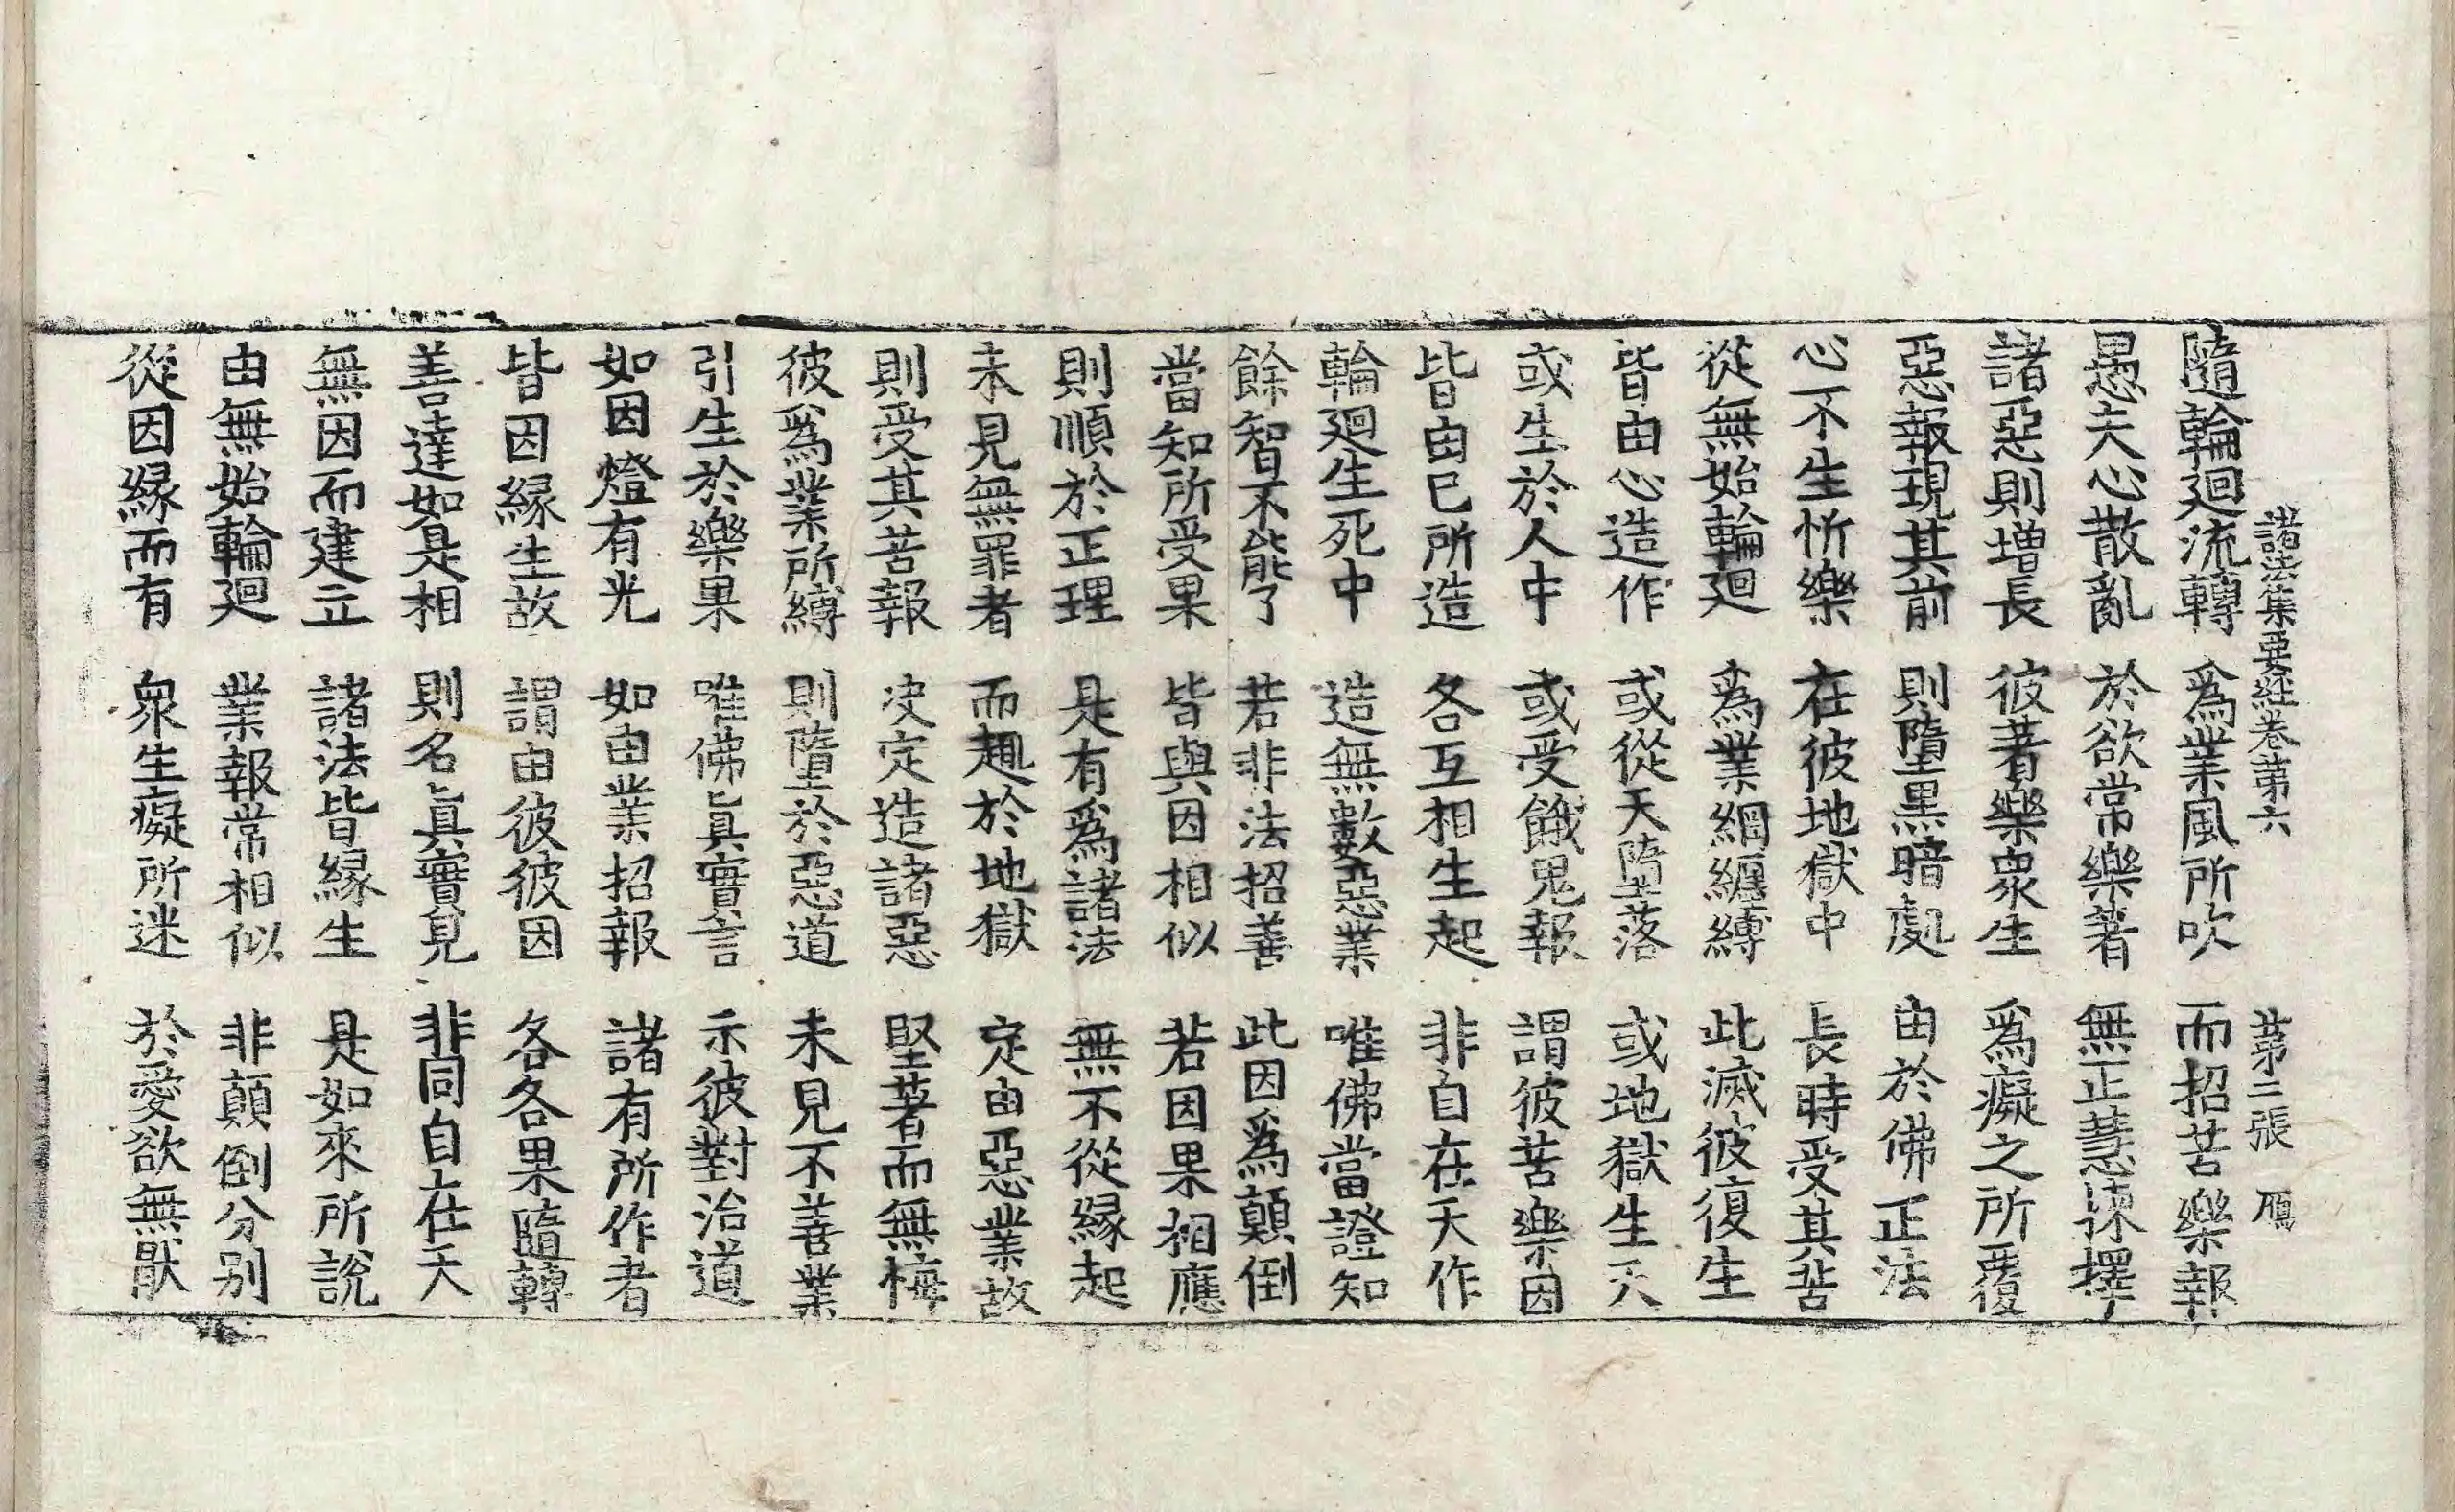 諸法集要經卷第六 第二張 鴈
隨輪迴流轉 爲業風所吹 而招苦樂報
愚夫心散亂 於欲常樂著 無正慧揀擇
諸惡則增長 彼著樂衆生 爲癡之所覆
惡報現其前 則墮黑暗處 由於佛正法
心不生忻樂 在彼地獄中 長時受其苦
從無始輪迴 爲業網纏縛 此滅彼復生
皆由心造作 或從天墮落 或地獄生天
或生於人中 或受餓鬼報 謂彼苦樂因
皆由已所造 各互相生起 非自在天作
輪迴生死中 造無數惡業 唯佛當證知
餘智不能了 若非法招善 此因爲顛倒
當知所受果 皆與因相似 若因果相應
則順於正理 是有爲諸法 無不從縁起
未見無罪者 而趣於地獄 定由惡業故
則受其苦報 决定造諸惡 堅著而無悔
彼爲業所縛 則墮於惡道 未見不善業
引生於樂果 唯佛眞實言 示彼對治道
如因燈有光 如由業招報 諸有所作者
皆因縁生故 謂由彼彼因 各各果隨轉
善達如是相 則名眞實見 非同自在天
無因而建立 諸法皆縁生 是如來所說
由無始輪迴 業報常相似 非顛倒分别
從因縁而有 衆生癡所迷 於愛欲無厭